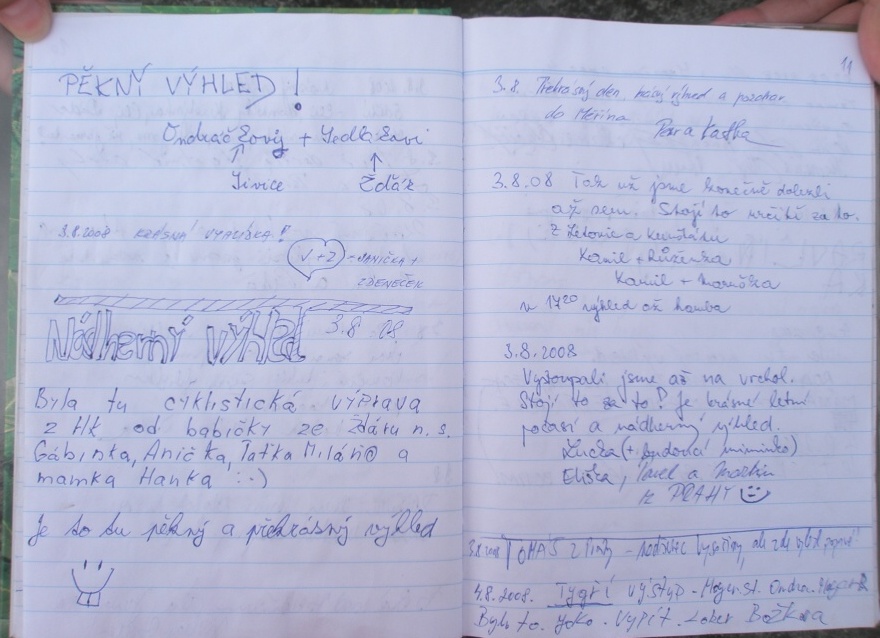 PĚKNÝ VÝHLED!
Ondráčkovi + Sedláčkovi
Jivice Žďár
3.8.2008 KRÁSNÁ VYHLÍDKA!!
V+Z = JANIČKA +
ZDENEČEK
Nádherný výhled 3.8.08
Byla tu cyklistická výprava
z HK od babičky ze Žďáru n.s.
Gábinka, Anička, Taťka Milán a
mamka Hanka :-)
Je to tu pěkný a překrásný výhled
11
3.8. Překrásný den, výhled a pozdrav
do Měřína
Katka
3.8.08 Tak už jsme konečně dolezli
až sem. Stojí to určitě za to.
Z Letovic a Kunštátu
Kamil + Růženka
Kamil + Maruška
v 17 20 výhled až
3.8.2008
Vystoupali jsme až na vrchol.
Stojí to za to! Je krásné letní
počasí a nádherný výhled.
Lucka (+ budoucí miminko)
Eliška, Pavel a Martin
z PRAHY
3.8.2008 TOMÁŠ z Prahy -
4.8.2008. Tygří výstup - Ondra
Bylo to. Yoko. Vypít.